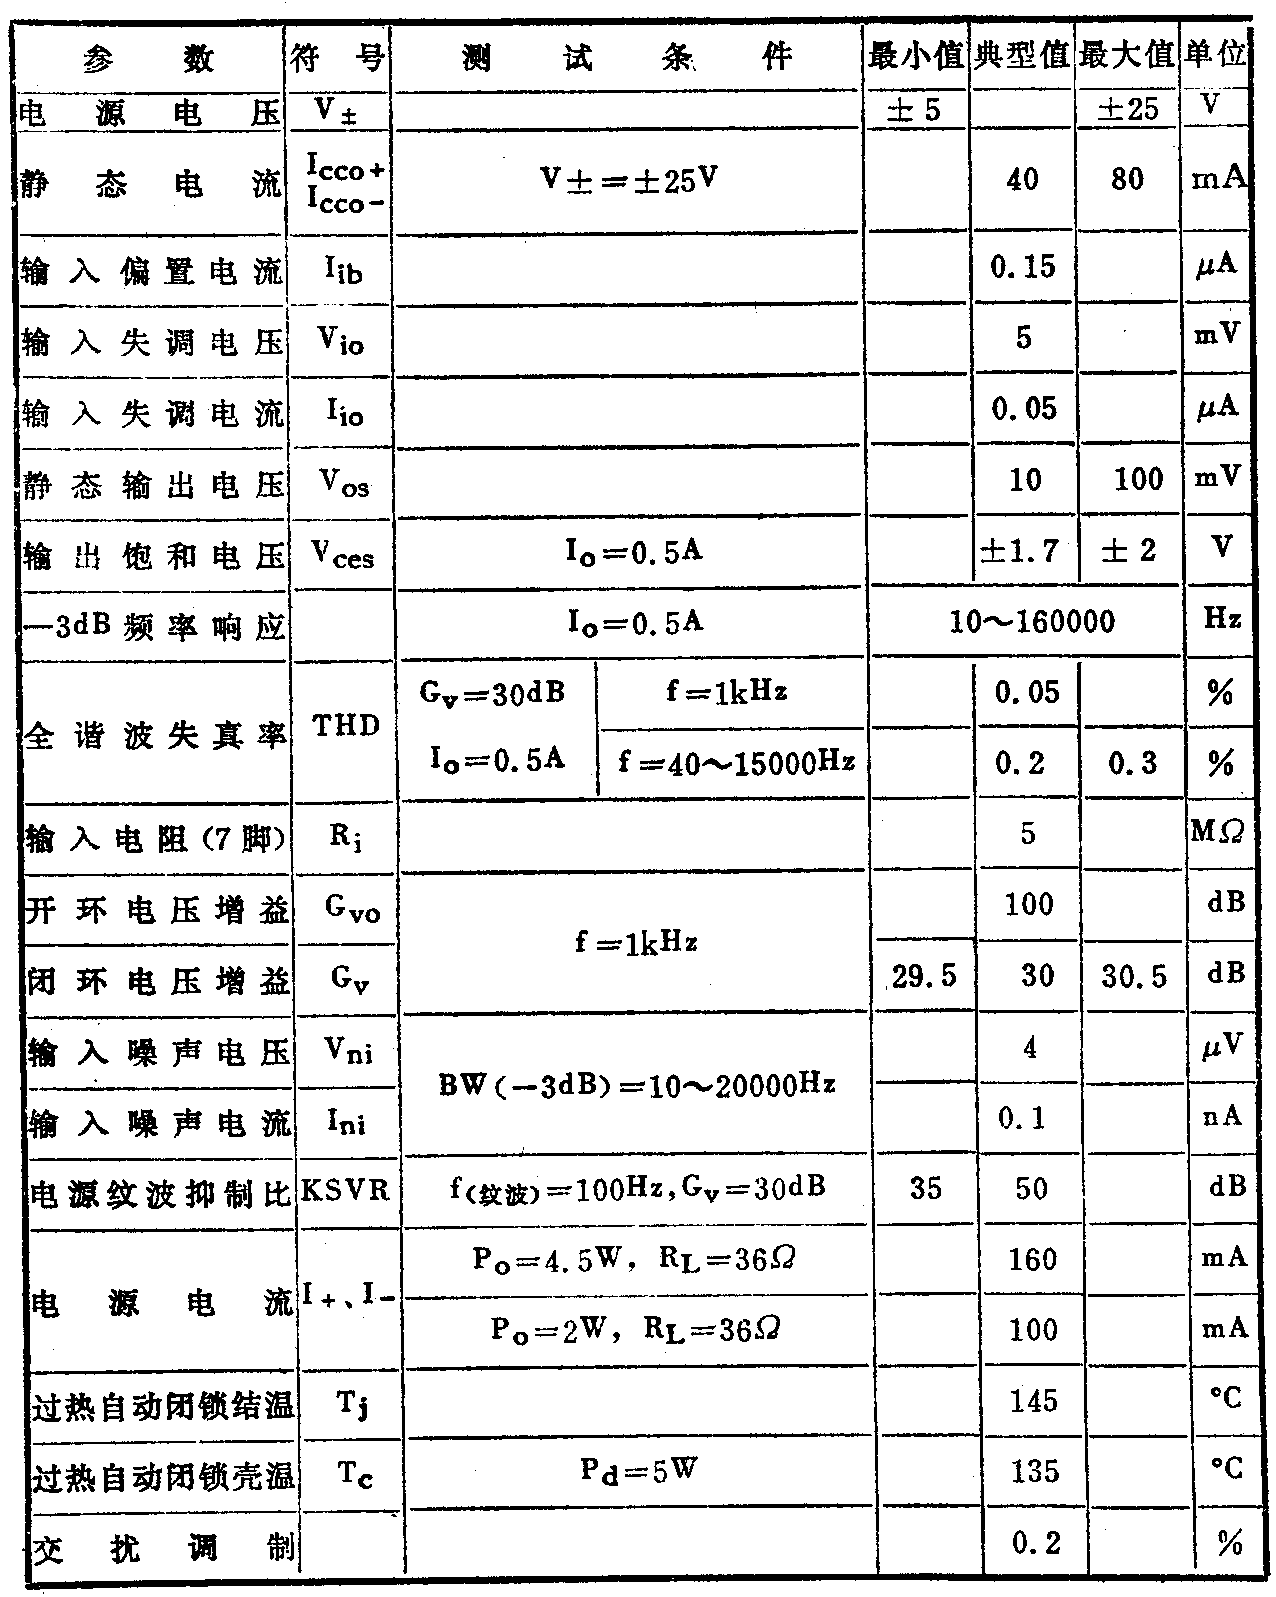 参数 符号 测试条件 最小值 典型值 最大值 单位
电源电压 V± ±5 ±25 V
静态电流 Icco+ Icco− V±=±25V 40 80 mA
输入偏置电流 Iib 0.15 μA
输入失调电压 Vio 5 mV
输入失调电流 Iio 0.05 μA
静态输出电压 Vos 10 100 mV
输出饱和电压 Vces Io=0.5A ±1.7 ±2 V
−3dB频率响应 Io=0.5A 10～160000 Hz
全谐波失真率 THD Gv=30dB Io=0.5A f=1kHz 0.05 %
f=40～15000Hz 0.2 0.3 %
输入电阻(7脚) Ri 5 MΩ
开环电压增益 Gvo f=1kHz 100 dB
闭环电压增益 Gv 29.5 30 30.5 dB
输入噪声电压 Vni BW(−3dB)=10～20000Hz 4 μV
输入噪声电流 Ini 0.1 nA
电源纹波抑制比 KSVR f(纹波)=100Hz,Gv=30dB 35 50 dB
电源电流 I+、I− Po=4.5W, RL=36Ω 160 mA
Po=2W, RL=36Ω 100 mA
过热自动闭锁结温 Tj 145 °C
过热自动闭锁壳温 Tc Pd=5W 135 °C
交扰调制 0.2 %